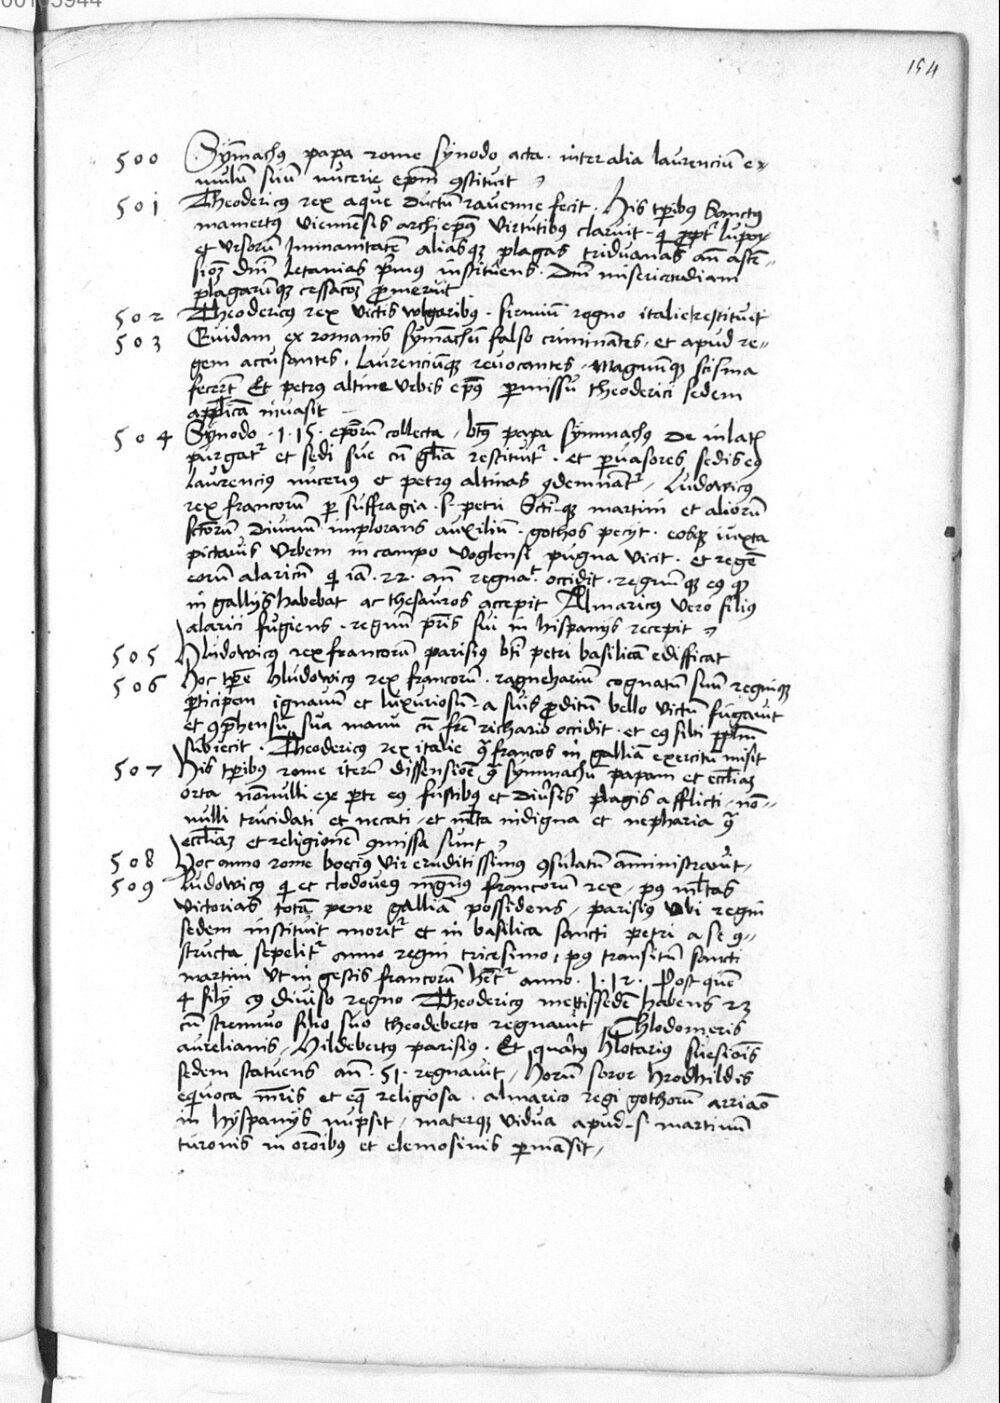 00103944
154
500 Sym̄achꝰ papa rome synodo acta · inter alia laurenciū e-
mulū suū nucerie ep̄m ꝯstituit
501 Theodericus rex aque ductū ravenne fecit · His tꝑibus Sanctꝰ
mamertꝰ viennēsis archiep̄us virtutibus claruit · qi ꝓpt͛ lupoꝝ
et ursorū Immanitatē aliasqꝫ plagas triduanas an̄ ascē-
sioꝫ dn̄i Letanias pͥmꝰ instituens · Dei misericordiam
plagarūqꝫ cessacōꝫ ꝓmeruit
502 Theodericus rex victis vulgaribꝰ · sirmiū regno italie restituit
503 Quidam ex romanis sym̄achū falso criminātes · et apud re-
gem accusantes · Laurenciūqꝫ revocantes · Magnūqꝫ scisma
fecer̄t Et petrꝰ altine urbis ep̄us ꝑmissu theoderici sedem
apl̄icā invasit
504 Synodo · 115 · ep̄orū collecta · bt̄us papa symmachꝰ de inlatꝭ
purgatͬ et sedi sue cū gl̄ia restituitͬ · et ꝑvasores sedis eꝰ
Laurencius nucerius et petrus altinas ꝯdemnātͬ · Ludowicꝰ
rex francorū ꝑ suffragia · s · petri Sctī qꝫ martini et aliorū
sctōrū divinū implorans auxiliū · gothos pecijt · eosqꝫ iuxta
pictavis urbem in campo voglensi pugna vicit · et regē
eorū alaricū qi iā · 22 · an̄ regnat͛ · occidit · regnūqꝫ eꝰ qd
in gallijs habebat ac thesauros accepit Almaricus vero filiꝰ
alarici fugiens · regnū pr̄is sui in hispanijs recepit
505 Hludowicꝰ rex francorū parisiꝰ bt̄i petri basilicā edifficat
506 Hoc tꝑe hludowicꝰ rex francorū · ragneharium cognatū suū regniqꝫ
ꝑticipem ignavū et luxuriosū · a suis ꝓditū bello victū fugavit
et ꝯpͬhensū sua manu cū fr̄e richario occidit · et eꝰ sibi ppl̄m
subiecit · Theodericus rex italie ꝯͣ francos in galliā exercitū misit
507 His tꝑibus rome iterū dissensiōe ꝯͣ symmachū papam et eccl̄iaꝫ
orta nōnulli ex ꝑte eꝰ fustibꝰ et div̄sis plagis afflicti · nō-
nulli trucidati et necati · et ml̄ta indigna et nepharia ꝯͣ
eccl̄iaꝫ et religionē ꝯmissa sunt
508 Hoc anno rome boeciꝰ vir eruditissimus ꝯsulatū am̄inistravit
509 Ludowicꝰ qi et clodoveꝰ mḡnꝰ francorū rex · pꝰ ml̄tas
victorias totā pene galliā possidens · parisiꝰ ubi regni
sedem instituit moritͬ et in basilica sancti petri a se ꝯ-
structa sepelitͬ anno regni tricesimo · pꝰ transitū sancti
martini ut in gestis francorū hētͬ anno · 112 · Post quē
4 filij eꝰ diviso regno Theodericus mettis sedē habens 23
cū strenuo filio suo theodeberto regnavit · Chlodomeris
aurelianis · Hildebertꝰ parisiꝰ · Et quartꝰ hlotarius suesionīs
sedem statuens an̄ · 51 · regnavit · horū soror hrodhildis
equivoca mr̄is et eqͤ religiosa · almarico regi gothorū arriaō
in hyspanijs nupsit · materqꝫ vidua apud · s · martinū
turonis in orōibus et elemosinis ꝑmāsit